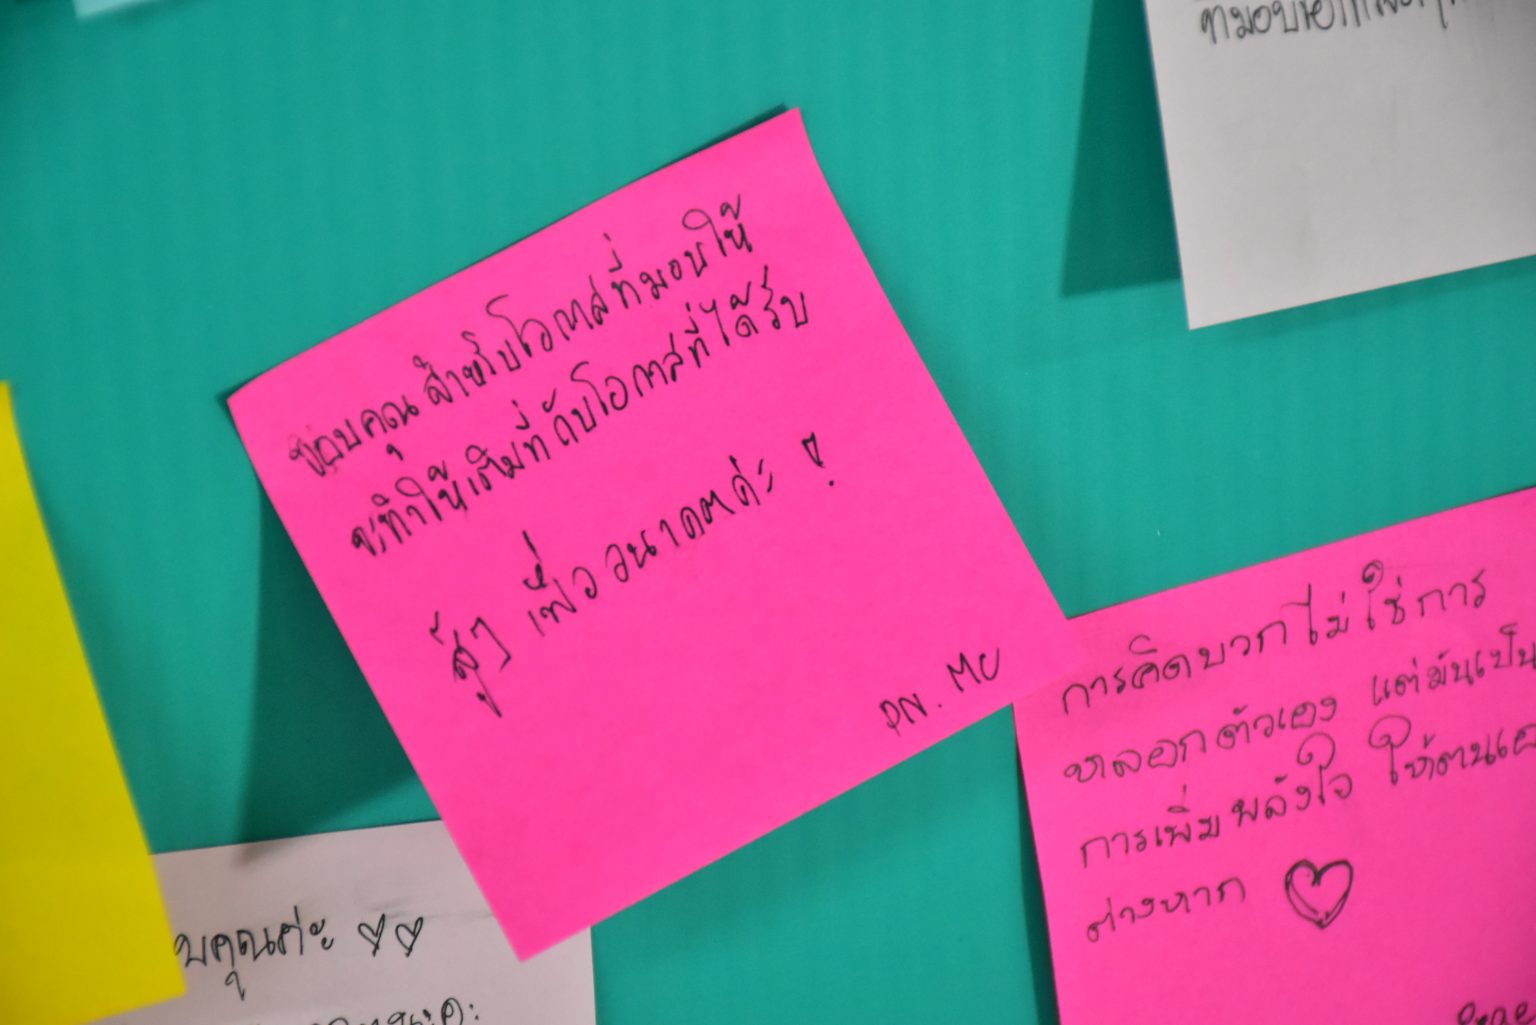 ที่มอบ
ขอบคุณ สำหรับโอกาสที่มอบให้
จะทำให้เต็มที่ กับโอกาสที่ได้รับ
สู้ๆ เพื่ออนาคตค่ะ !
PN. MU
การคิดบวก ไม่ใช่การ
หลอกตัวเอง แต่มันเป็น
การเพิ่มพลังใจ ให้ตนเอ
ต่างหาก ♡
บคุณค่ะ ♡♡